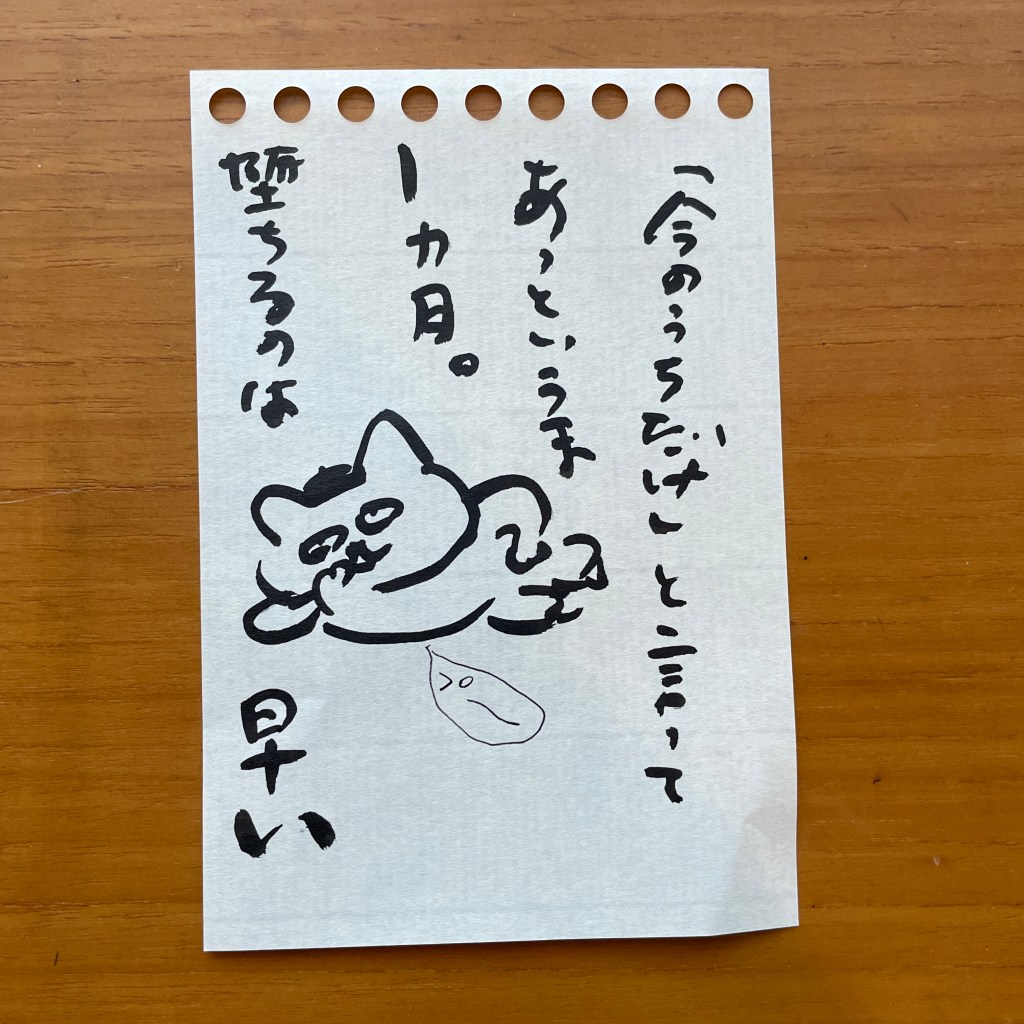 「今のうちだけ」と言って
あっというま
1カ月。
堕ちるのは
早い